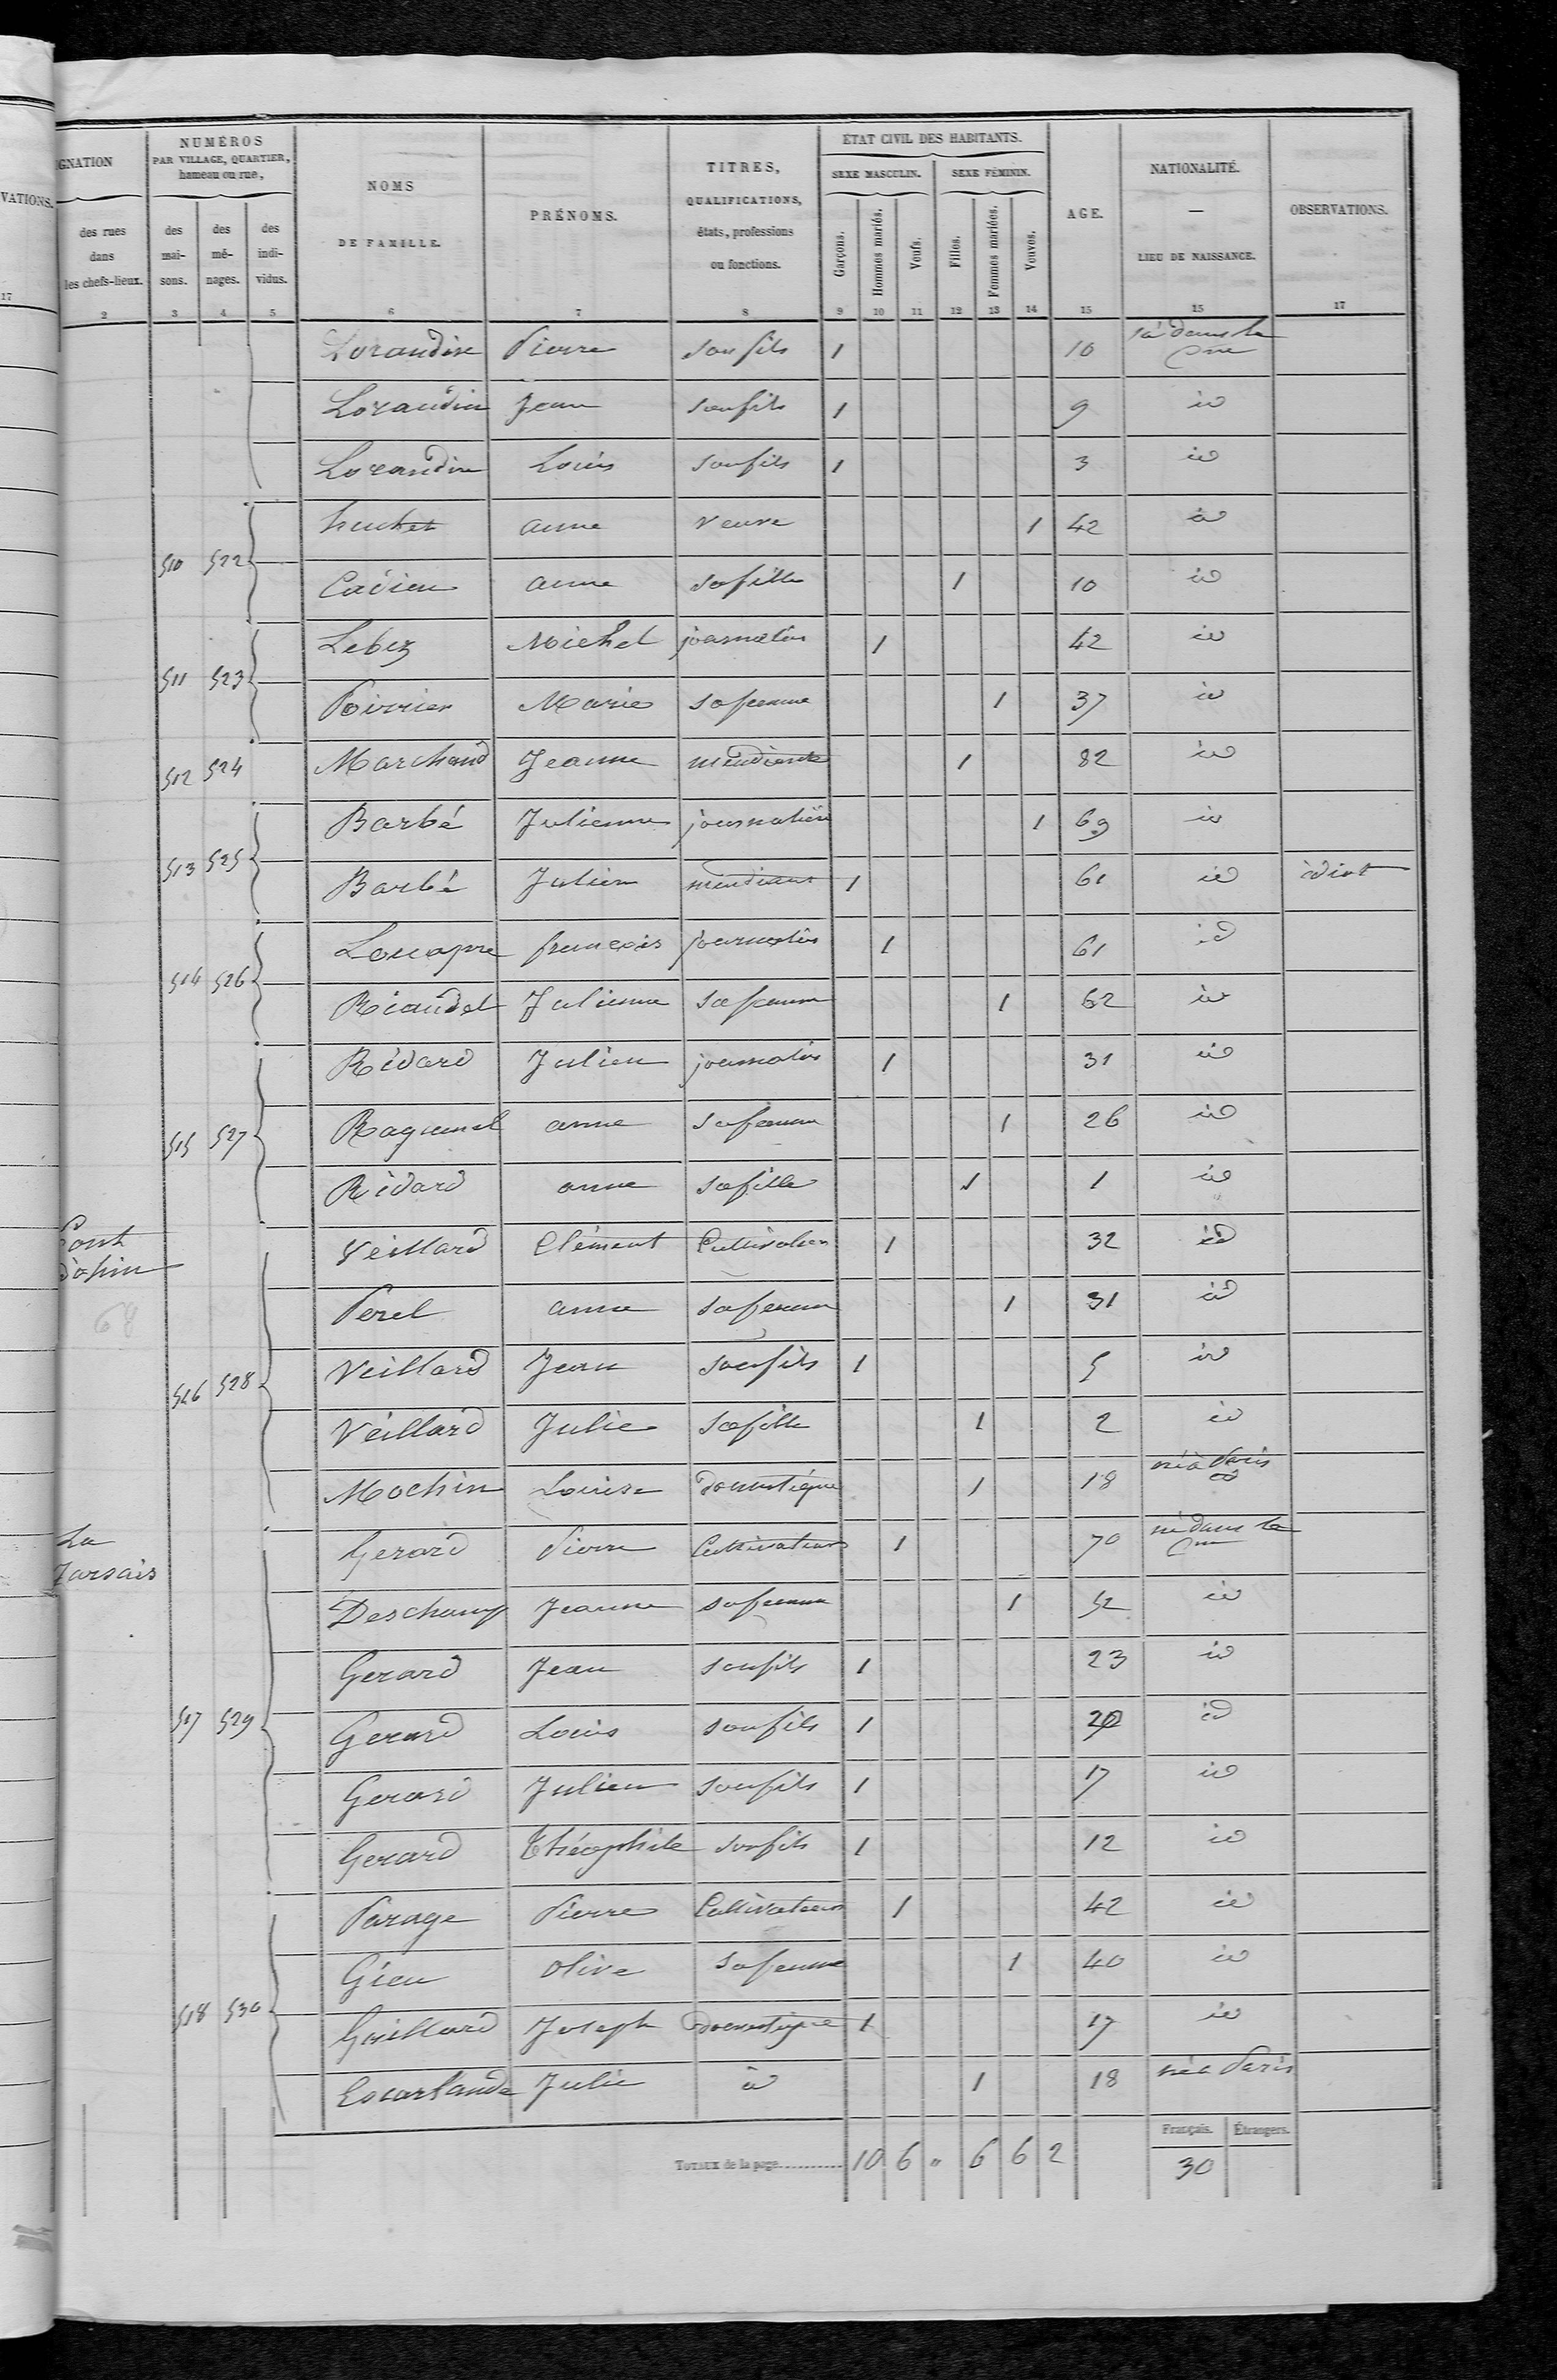 VATIONS.
17
GNATION
des rues
dans
les chefs-lieux.
2
NUMÉROS
PAR VILLAGE, QUARTIER,
hameau ou rue,
des
mai-
sons.
3
des
mé-
nages.
4
des
indi-
vidus.
5
NOMS
DE FAMILLE.
6
PRÉNOMS.
7
TITRES,
QUALIFICATIONS,
états, professions
ou fonctions.
8
ÉTAT CIVIL DES HABITANTS.
SEXE MASCULIN.
SEXE FÉMININ.
Garçons.
9
Hommes mariés.
10
Veufs.
11
Filles.
12
Femmes mariées.
13
Veuves.
14
AGE.
15
NATIONALITÉ.
—
LIEU DE NAISSANCE.
15
OBSERVATIONS.
17
Lorandin Pierre son fils 1 10 né dans la
Cne
Lorandin Jean son fils 1 9 id
Lorandin Louis son fils 1 3 id
huchet anne veuve 1 42 id
510 522
Cadieu anne sa fille 1 10 id
Lebez Michel journalier 1 42 id
511 523
Poirrier Marie sa femme 1 37 id
512 524 Marchand Jeanne mendiante 1 82 id
Barbé Julienne journalière 1 69 id
513 525
Barbé Julien mendiant 1 61 id idiot
Loucapre francois journalier 1 61 id
514 526
Riaudel Julienne sa femme 1 62 id
Ridard Julien journalier 1 31 id
515 527 Raguenel anne sa femme 1 26 id
Ridard anne sa fille 1 1 id
Pont
dohin
Veillard Clément Cultivateur 1 32 id
68
Perel anne sa femme 1 31 id
516 528 Veillard Jean son fils 1 5 id
Veillard Julie sa fille 1 2 id
Mochin Louise domestique 1 18 né à Paris
La
Jarsais
Gerard Pierre Cultivateur 1 70 né dans la
Cne
Deschamp Jeanne sa femme 1 52 id
Gerard Jean son fils 1 23 id
517 529 Gerard Louis son fils 1 20 id
Gerard Julien son fils 1 17 id
Gerard Théophile son fils 1 12 id
Parage Pierre Cultivateur 1 42 id
Gieu olive sa femme 1 40 id
518 530 Gaillard Joseph domestique 1 17 id
Escarlande Julie id 1 18 née Paris
Français. Étrangers.
TOTAUX de la page 10 6 " 6 6 2 30